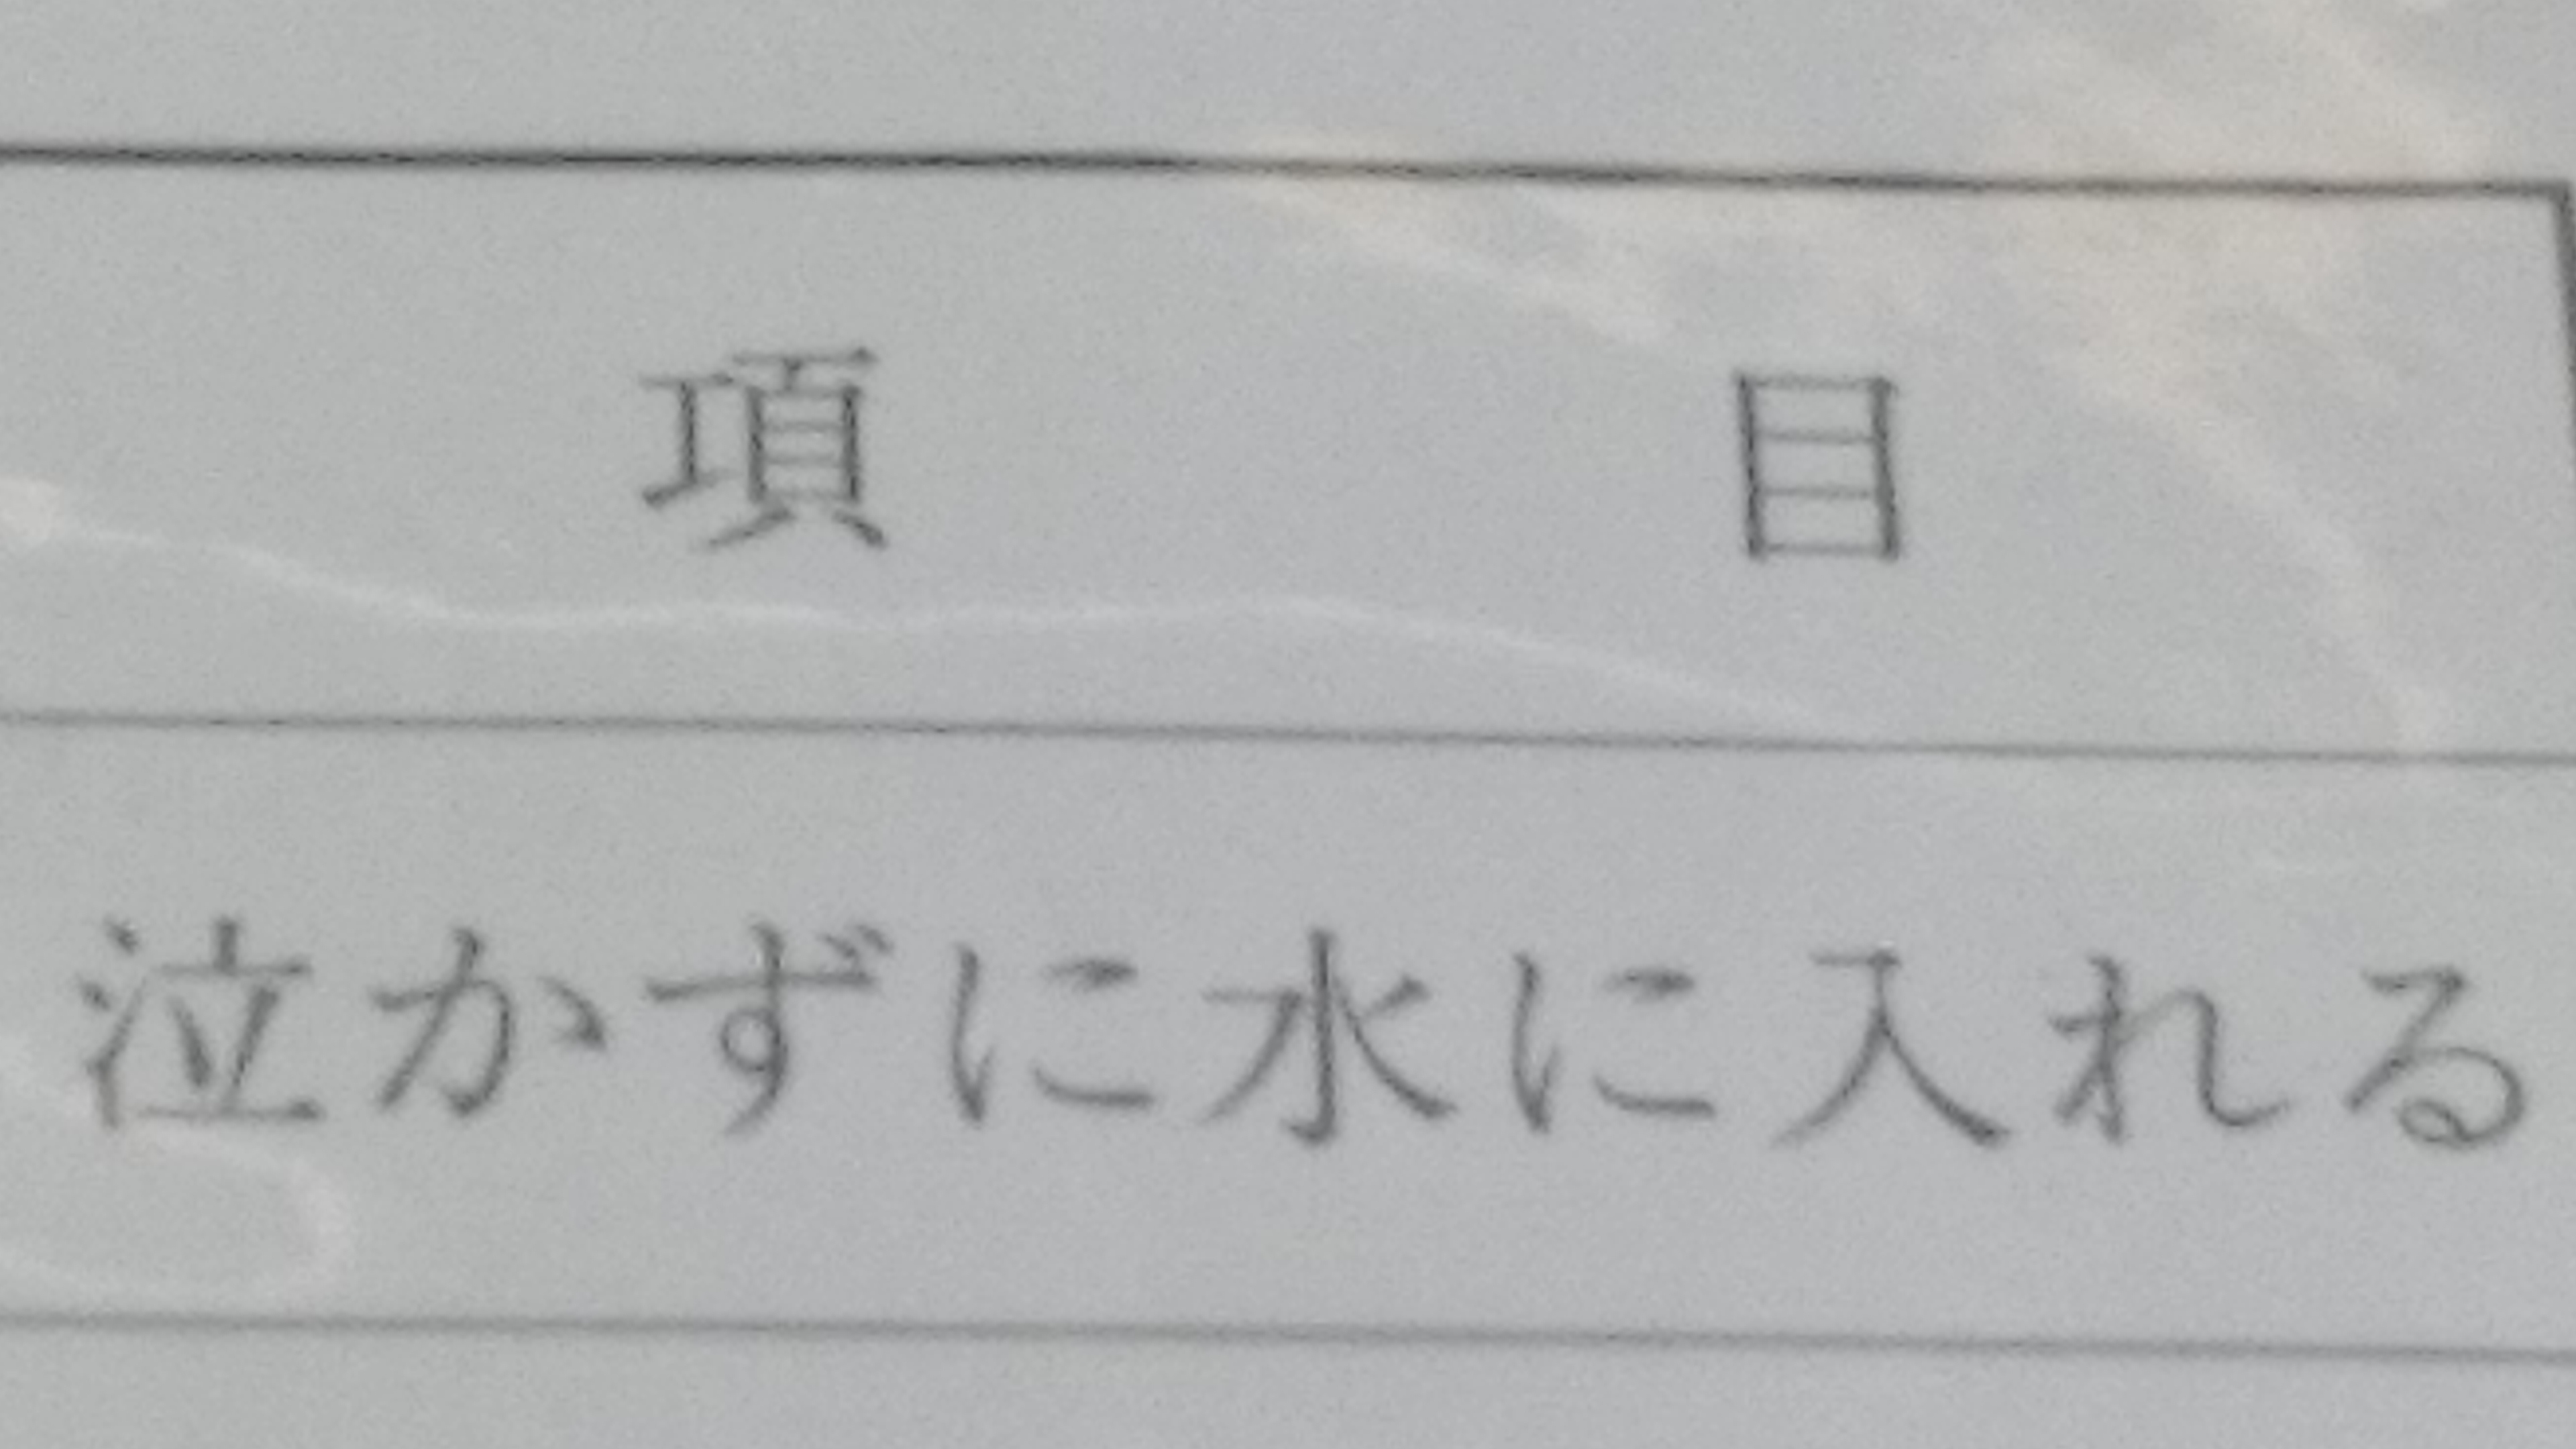 項目
泣かずに水に入れる